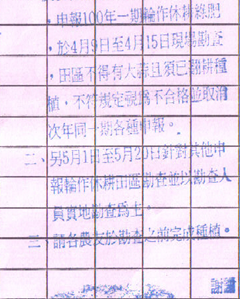 ，申報100年一期輪作休耕綠肥
，於4月9日至4月15日現場勘查
，田區不得有大蒜且須已翻耕種
植，不符規定視為不合格並取消
次年同一期各種申報。
二、另5月1日至5月20日針對其他申
報輪作休耕田區勘查並以勘查人
員實地勘查為主。
三、請各農友於勘查之前完成種植。
謝